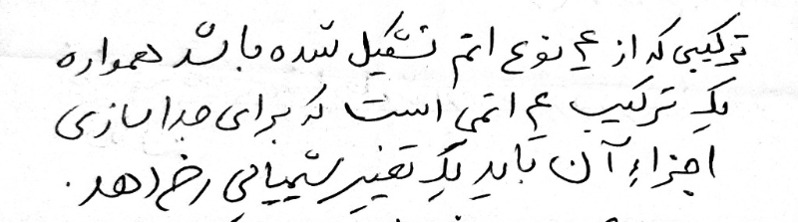 ترکیبی که از ۴ نوع اتم تشکیل شده باشد همواره
یک ترکیب ۴ اتمی است که برای جداسازی
اجزاء آن باید یک تغییر شیمیایی رخ دهد.